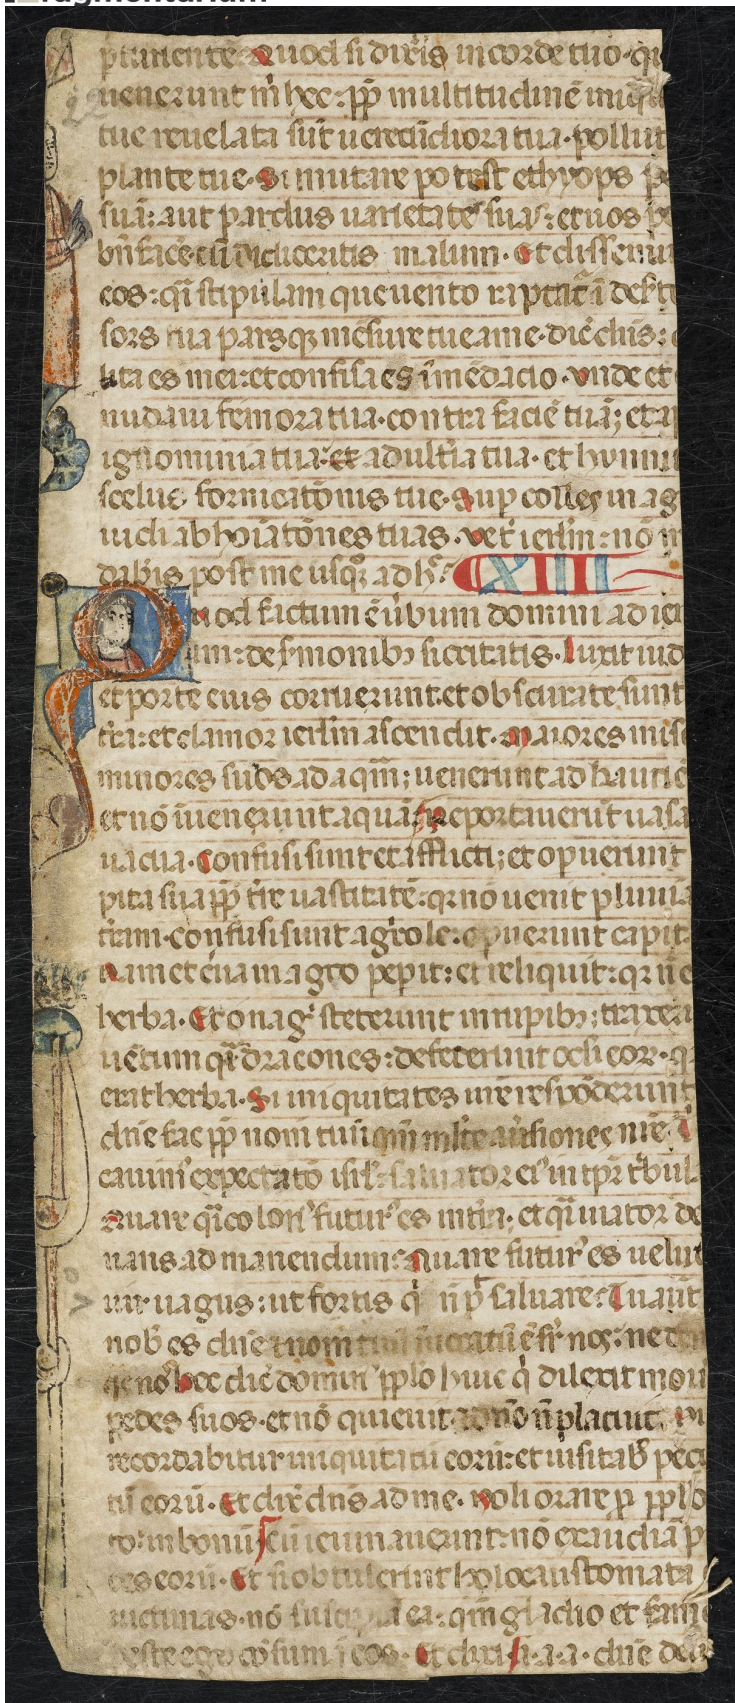 fragmentarium
pturiente. Quod si dix̄is in corde tuo. qr̄
uenerunt m̄ hec: pp̄ multitudinē iniq̄
tue reuelata sūt uerecūdiora tua. pollut
plante tue. Si mutare potest ethyops pe
suā: aut pardus uarietatē suas: et uos po
bn̄ facē. cū didiceritis malum. Et dissemi
eos: qi stipulam que uento raptat̄ ī des̄to
sors tua parsq; mēsure tue a me. dic̄ dn̄s:
lita es mei: et confisa es ī mēdacio. Unde et
nudaui femora tua. contra faciē tuā; et a
ignominia tua: et adult̄ia tua. et hinnit
scelus fornicatōnis tue. Sup colles in ag
uidi abhoīatōnes tuas. Ve t̄ ierl̄m: nō m
dab̄is post me usq; adh̄? XIIII
Quod factum ē ūbum domini ad ier
am: de s̄monib; siccitatis. Luxit iud
et porte eius corruerunt. et obscurate sunt
t̄ra: et clamor ierl̄m ascendit. Maiores mis
minores suos ad aqm̄; uenerunt ad hauriē
et nō īuenerunt aquā. Reportauerūt uasa
uacua. Confusi sunt et afflicti; et opuerunt
pita sua pp̄ t̄re uastitatē: qr nō uenit pluuia
t̄ram. confusi sunt agrōle. opuerunt capit
Nam et c̄ua in agro pepit: et reliquit: qr n̄ e
herba. Et onag̃ steterunt in rupib; traxer
uētum q̄i dracones: defecerunt ocl̄i eor. q
erat herba. Si iniquitates nr̄e respōderunt
dn̄e fac pp̄ nom̄ tuū qm̄ mlt̄e au̇siones nr̄e. T
cauim̄ expectatō isrl̄: saluator ei᾽ in tp̄r t̄bul
Quare q̄i colon᾽ futur᾽ es in t̄ra. et q̄i uiator de
nans ad manendum: Quare futur᾽ es uelut
uir uagus: ut fortis q̄ n̄ p̄t saluare: Tu aūt
nob᾽ es dn̄e t nom̄ tuū īuocatū ē sr̄ nos: ne d
nos. Hec dic̄ domin᾽ pplo huic q̄ dilexit mou
pedes suos. et nō quieuit. ad n̄o n̄ placuit. 
recordabitur iniquitatū eorū: et uisitab̄ pec
tū eorū. Et dix̄ dn̄s ad me. Noli orare p pplo
to: in bonū. Cū ieiunauerint: nō exaudiā p
ces eorū. Et si obtulerint holocaustomata
uictimas. nō suscipiā ea: qm̄ gladio et fam
peste ego cōsumā eos. Et dixi. A. a. a. dn̄e de